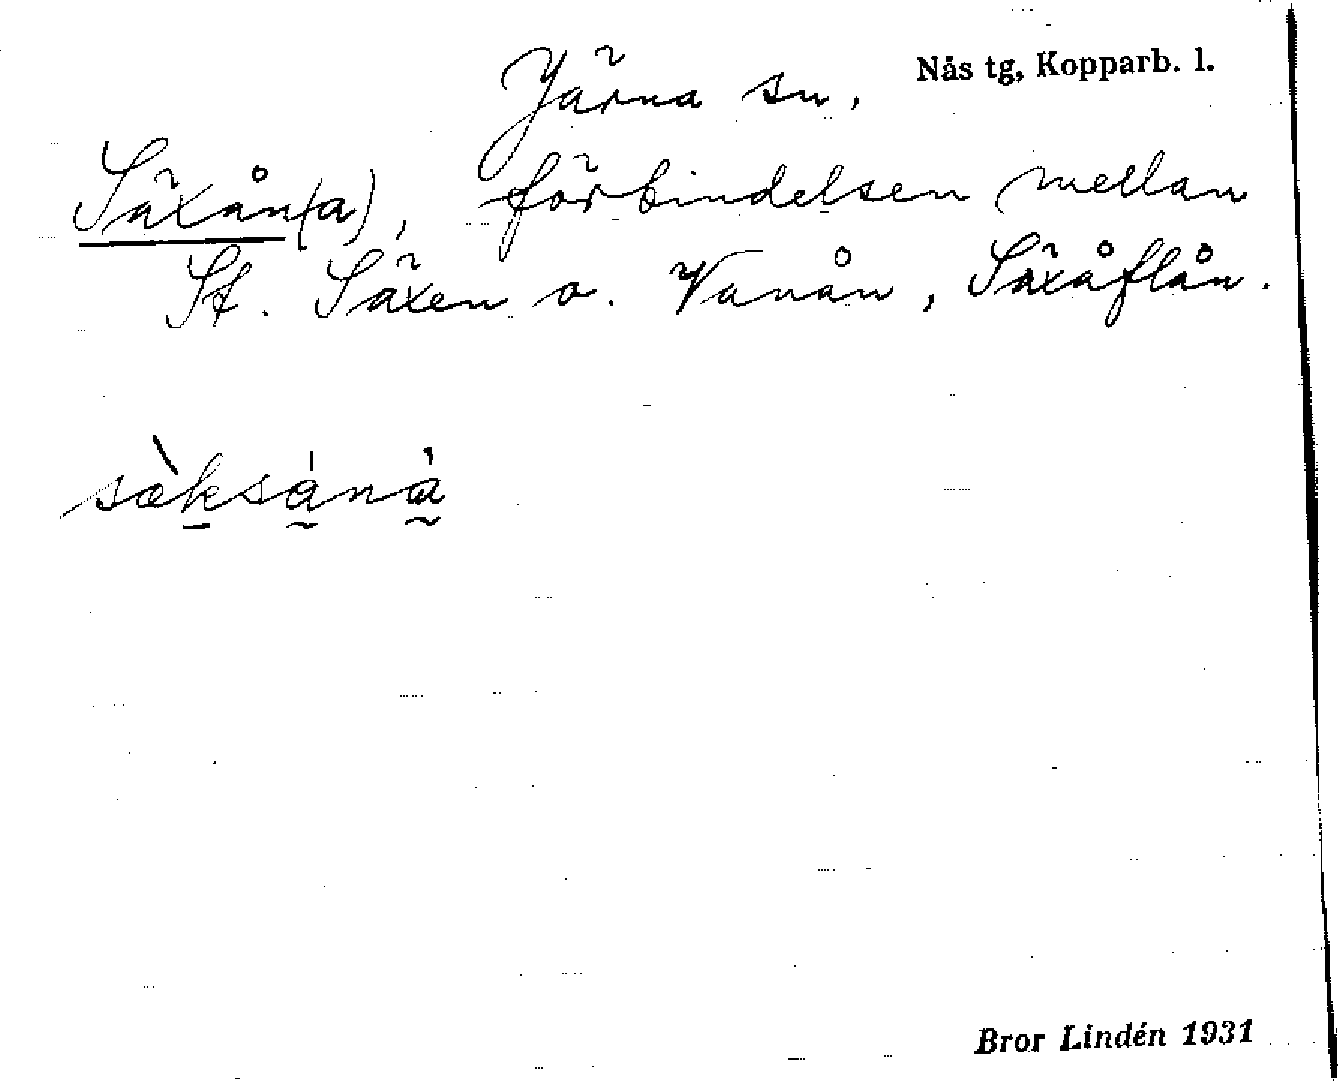 Järna sn. Nås tg, Kopparb. l.
Säxån(a), förbindelsen mellan
St. Säxen o. Vanån, Säxåflån.
sæ̀ksånå
Bror Lindén 1931